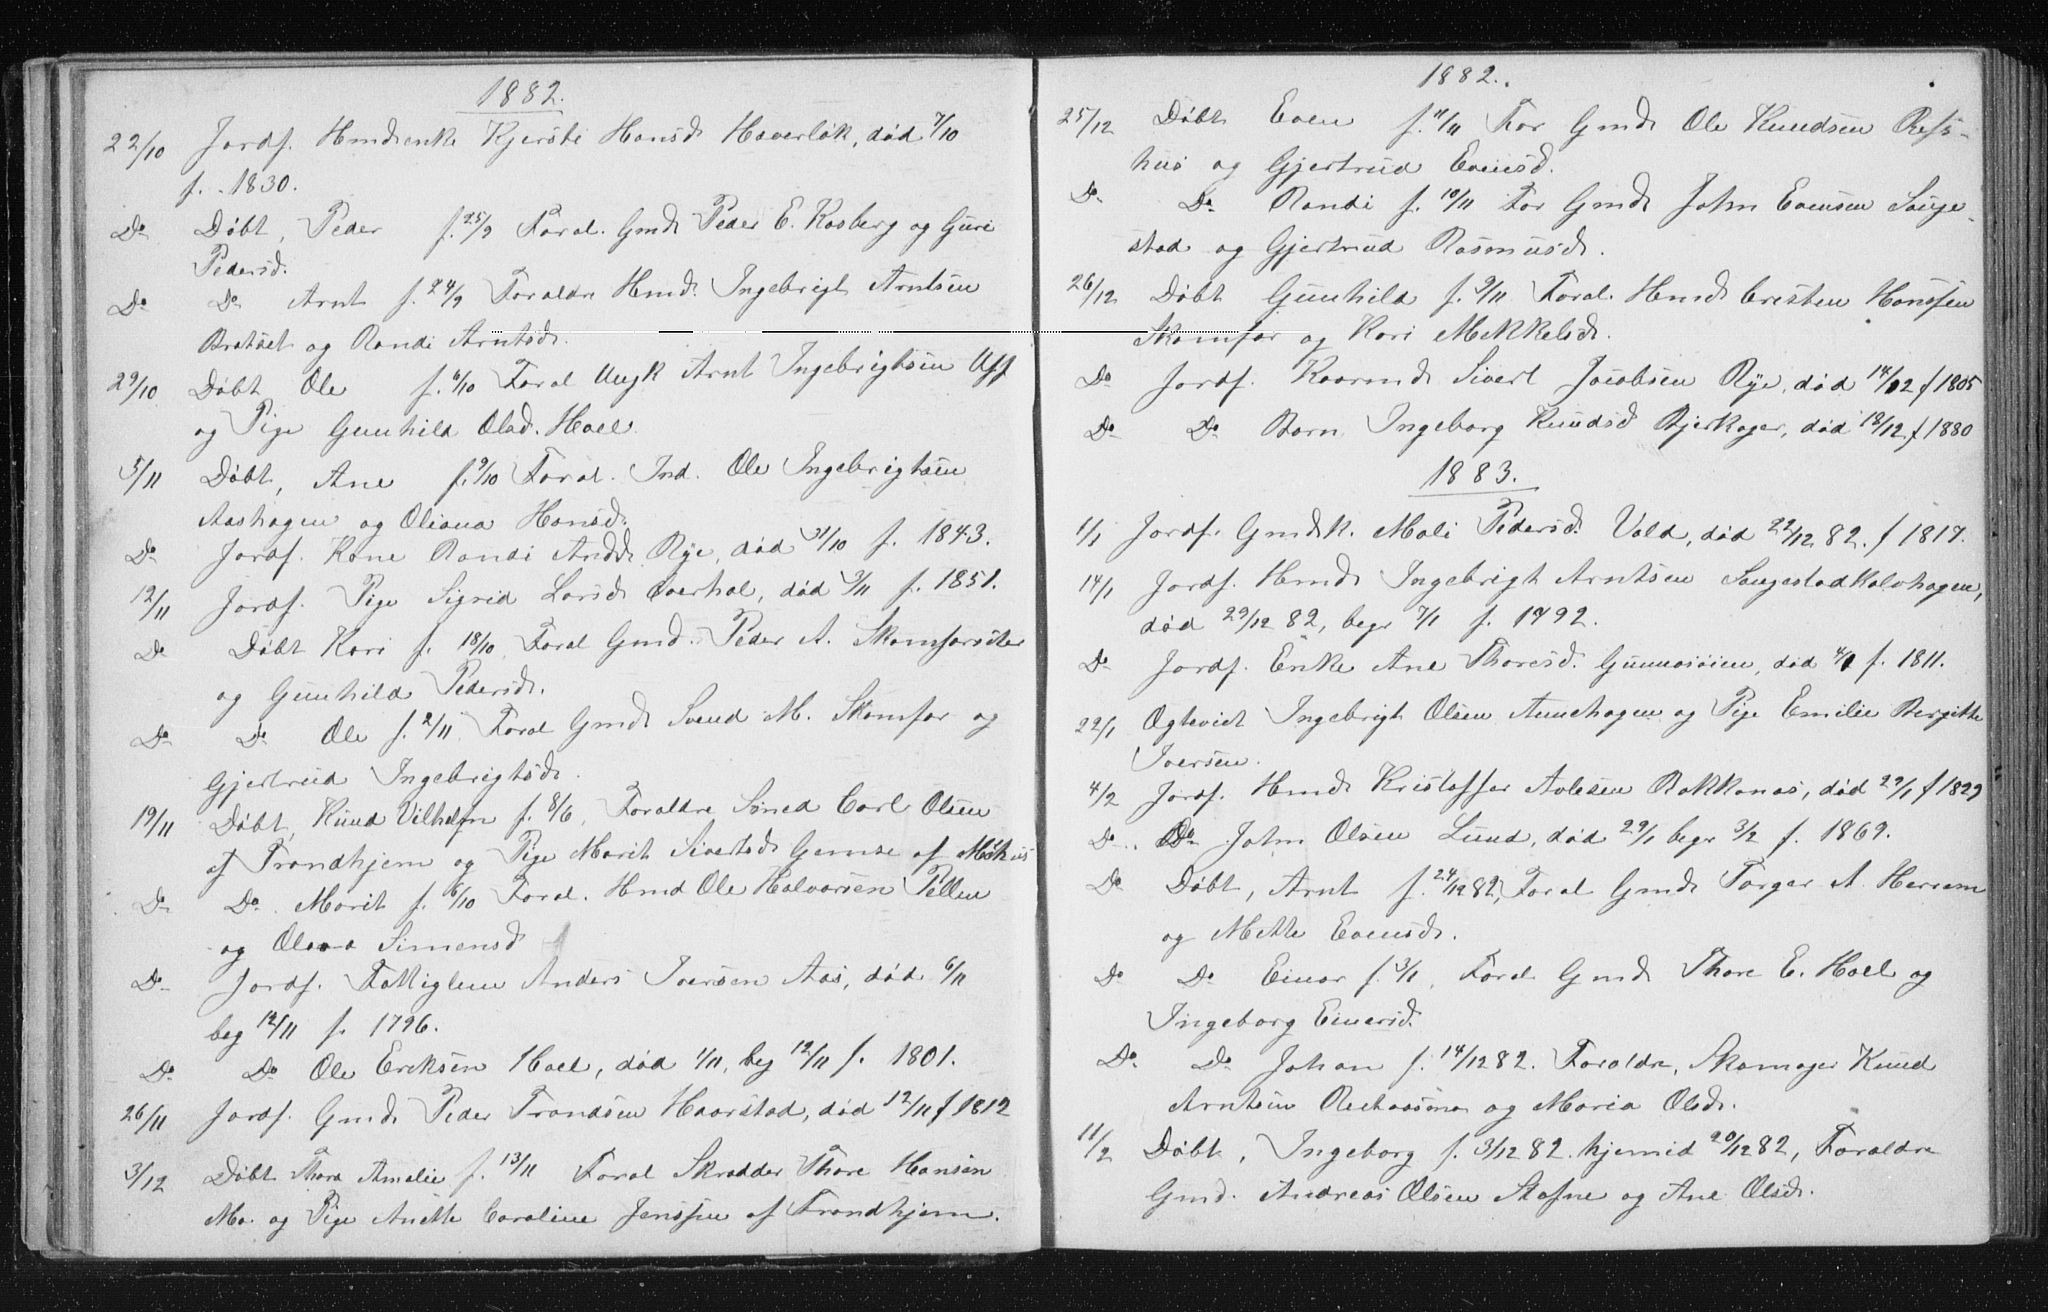 1882.
22/10 Jordf. Hmdsenke Kjersti Hansd. Haverløk, død 7/10
f. 1830.
Do Døbt, Peder f. 25/9 Foral. Gmd. Peder E. Kosberg og Guri
Pedersd.
Do Do Arnt f. 24/9 Foraldre Hmd. Ingebrigt Arntsen
Bratset og Randi Arntsd.
29/10 Døbt Ole f. 6/10 Foral Ungk Arnt Ingebrigtsen Uff
og Pige Gunhild Olsd. Hoel.
5/11 Døbt, Ane f. 9/10 Foral. Ind. Ole Ingebrigtsen
Aashagen og Oliana Hansd.
Do Jordf. Kone Randi Andd. Rye, død 31/10 f. 1843.
12/11 Jordf. Pige Sigrid Larsd. Overhal, død 3/11 f. 1851.
Do Døbt Kari f. 18/10 Foral Gmd. Peder A. Skamfarsæter
og Gunhild Pedersd.
Do Do Ole f. 2/11 Foral Gmd. Svend M. Skamfar og
Gjertrud Ingebrigtsd.
19/11 Døbt, Knud Vilhelm f. 8/6, Foraldre Smed Carl Olsen
af Trondhjem og Pige Marit Sivertsd. Gamse af Mækus
Do Do. Marit f. 6/10 Foral. Hmd Ole Halvorsen Pellen
og Olava Simensd
Do Jordf. Fattiglem Anders Iversen Aas, død 6/11
beg 12/11 f. 1796.
Do Do Ole Eriksen Hoel, død 1/11, beg 12/11 f. 1801.
26/11 Jordf. Gmd. Peder Trondsen Haarstad, død 12/11 f 1812
3/12 Døbt Thora Amalie f. 13/11 Foral Skrædder Thore Hansen
Mo. og Pige Anette Caroline Jenssen af Trondhjem.
1882.
25/12 Døbt Even f. 11/11 For Gmd. Ole Knudsen Refs-
hus og Gjertrud Evensd.
Do Do Randi f. 10/11 For Gmd. John Evensen Sauge-
stad og Gjertrud Rasmusd.
26/12 Døbt Gunhild f. 9/11 Foral. Hmd. Cristen Hanssen
Skamfar og Kari Mekkelsd.
Do Jordf. Kaarmd. Sivert Jacobsen Rye, død 14/12 f 1805
Do Do Barn Ingeborg Knudsd Bjerkager, død 18/12 f 1880
1883.
1/1 Jordf. Gmdk. Mali Pedersd. Vold, død 22/12 82. f 1817.
14/1 Jordf. Hmd. Ingebrigt Arntsen Saugestadkalvhagen,
død 29/12 82, begr 7/1 f. 1792.
Do Jordf. Enke Ane Thoresd. Gunnesøien, død 4/1 f. 1811.
22/1 Ogteviet Ingebrigt Olsen Aunehagen og Pige Emilie Bergitte
Iversen.
4/2 Jordf. Hmd. Kristoffer Avlesen Bakkanas, død 29/1 f 1829
Do. Do John Olsen Lund, død 29/1 begr 3/2 f. 1869.
Do Døbt, Arnt f. 24/12 82, Foral Gmd. Torger A. Herrem
og Mette Evensd.
Do Do Einar f. 3/1, Foral Gmd. Thore E. Hoel og
Ingeborg Einersd.
Do Do Johan f. 14/12 82. Foraldre, Skomager Knud
Arntsen og Maria Olsd.
11/2 Døbt, Ingeborg f. 3/12 82. hjemd 20/12 82, Foraldre
Gmd. Andreas Olsen Stafne og Ane Olsd.